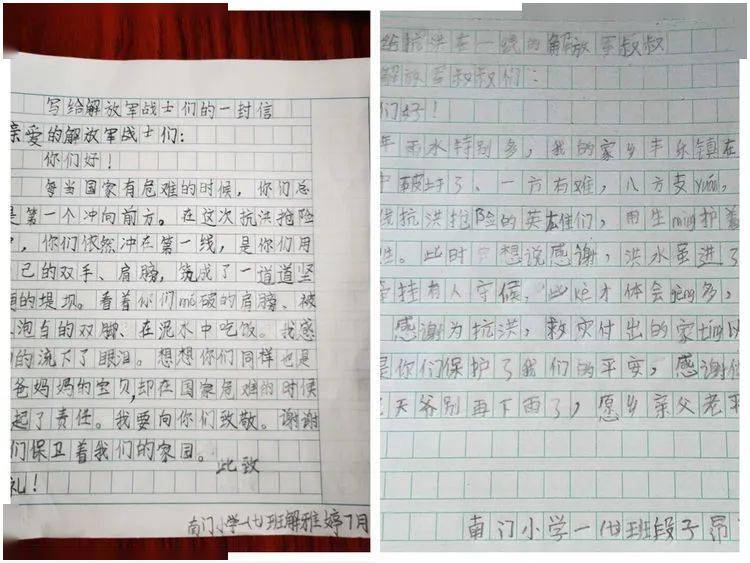 写给解放军战士们的一封信
亲爱的解放军战士们：
你们好！
每当国家有危难的时候，你们总
是第一个冲向前方。在这次抗洪抢险
中，你们依然冲在第一线，是你们用
己的双手、肩膀，筑成了一道道坚
的堤坝。看着你们mó破的肩膀、被
泡白的双脚、在泥水中吃饭。我感
的流下了眼泪。想想你们同样也是
爸妈妈的宝贝，却在国家危难的时候
起了责任。我要向你们致敬。谢谢
们保卫着我们的家园。
此致
礼！
南门小学一(7)班解雅婷7月
给抗洪在一线的解放军叔叔
解放军叔叔们：
们好！
年雨水特别多，我的家乡丰乐镇在
中破圩了、一方有难，八方支yuán，
线抗洪抢险的英雄们，用生mìng护着
。此时想说感谢，洪水虽进了
牵挂有人守候，此kè才体会gèng多，
感谢为抗洪，救灾付出的家tíng以
是你们保护了我们的平安，感谢
天爷别再下雨了，愿乡亲父老平
南门小学一(7)班段子昂